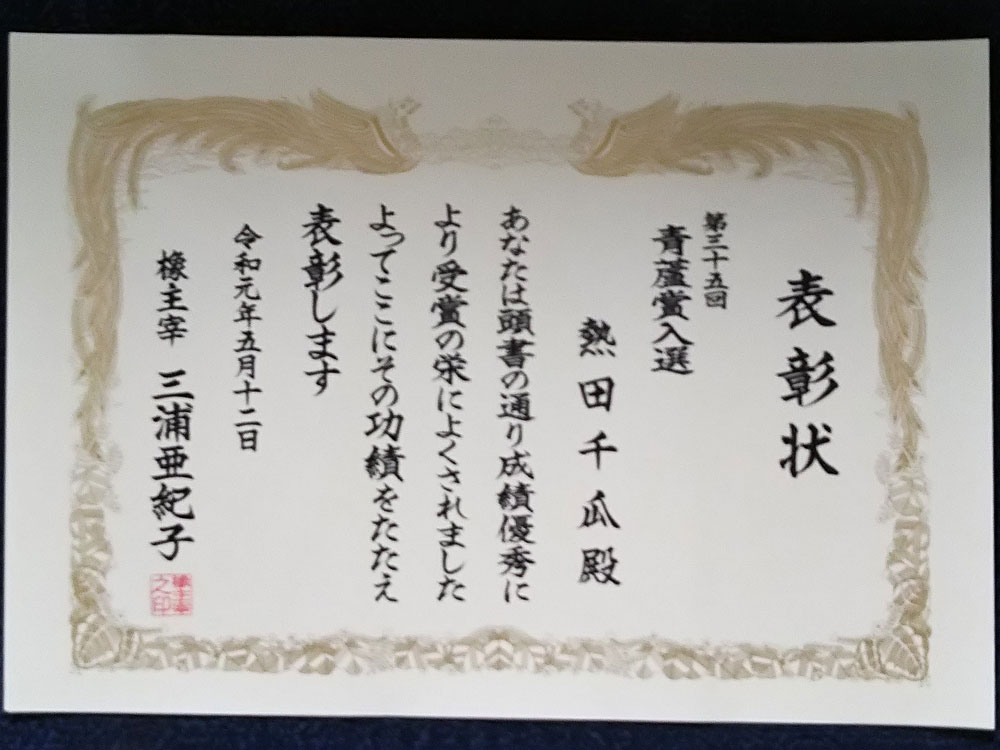 表彰状
第三十五回
青蘆賞入選
熱田千瓜殿
あなたは頭書の通り成績優秀に
より受賞の栄によくされました
よってここにその功績をたたえ
表彰します
令和元年五月十二日
橡主宰 三浦亜紀子
橡主宰之印